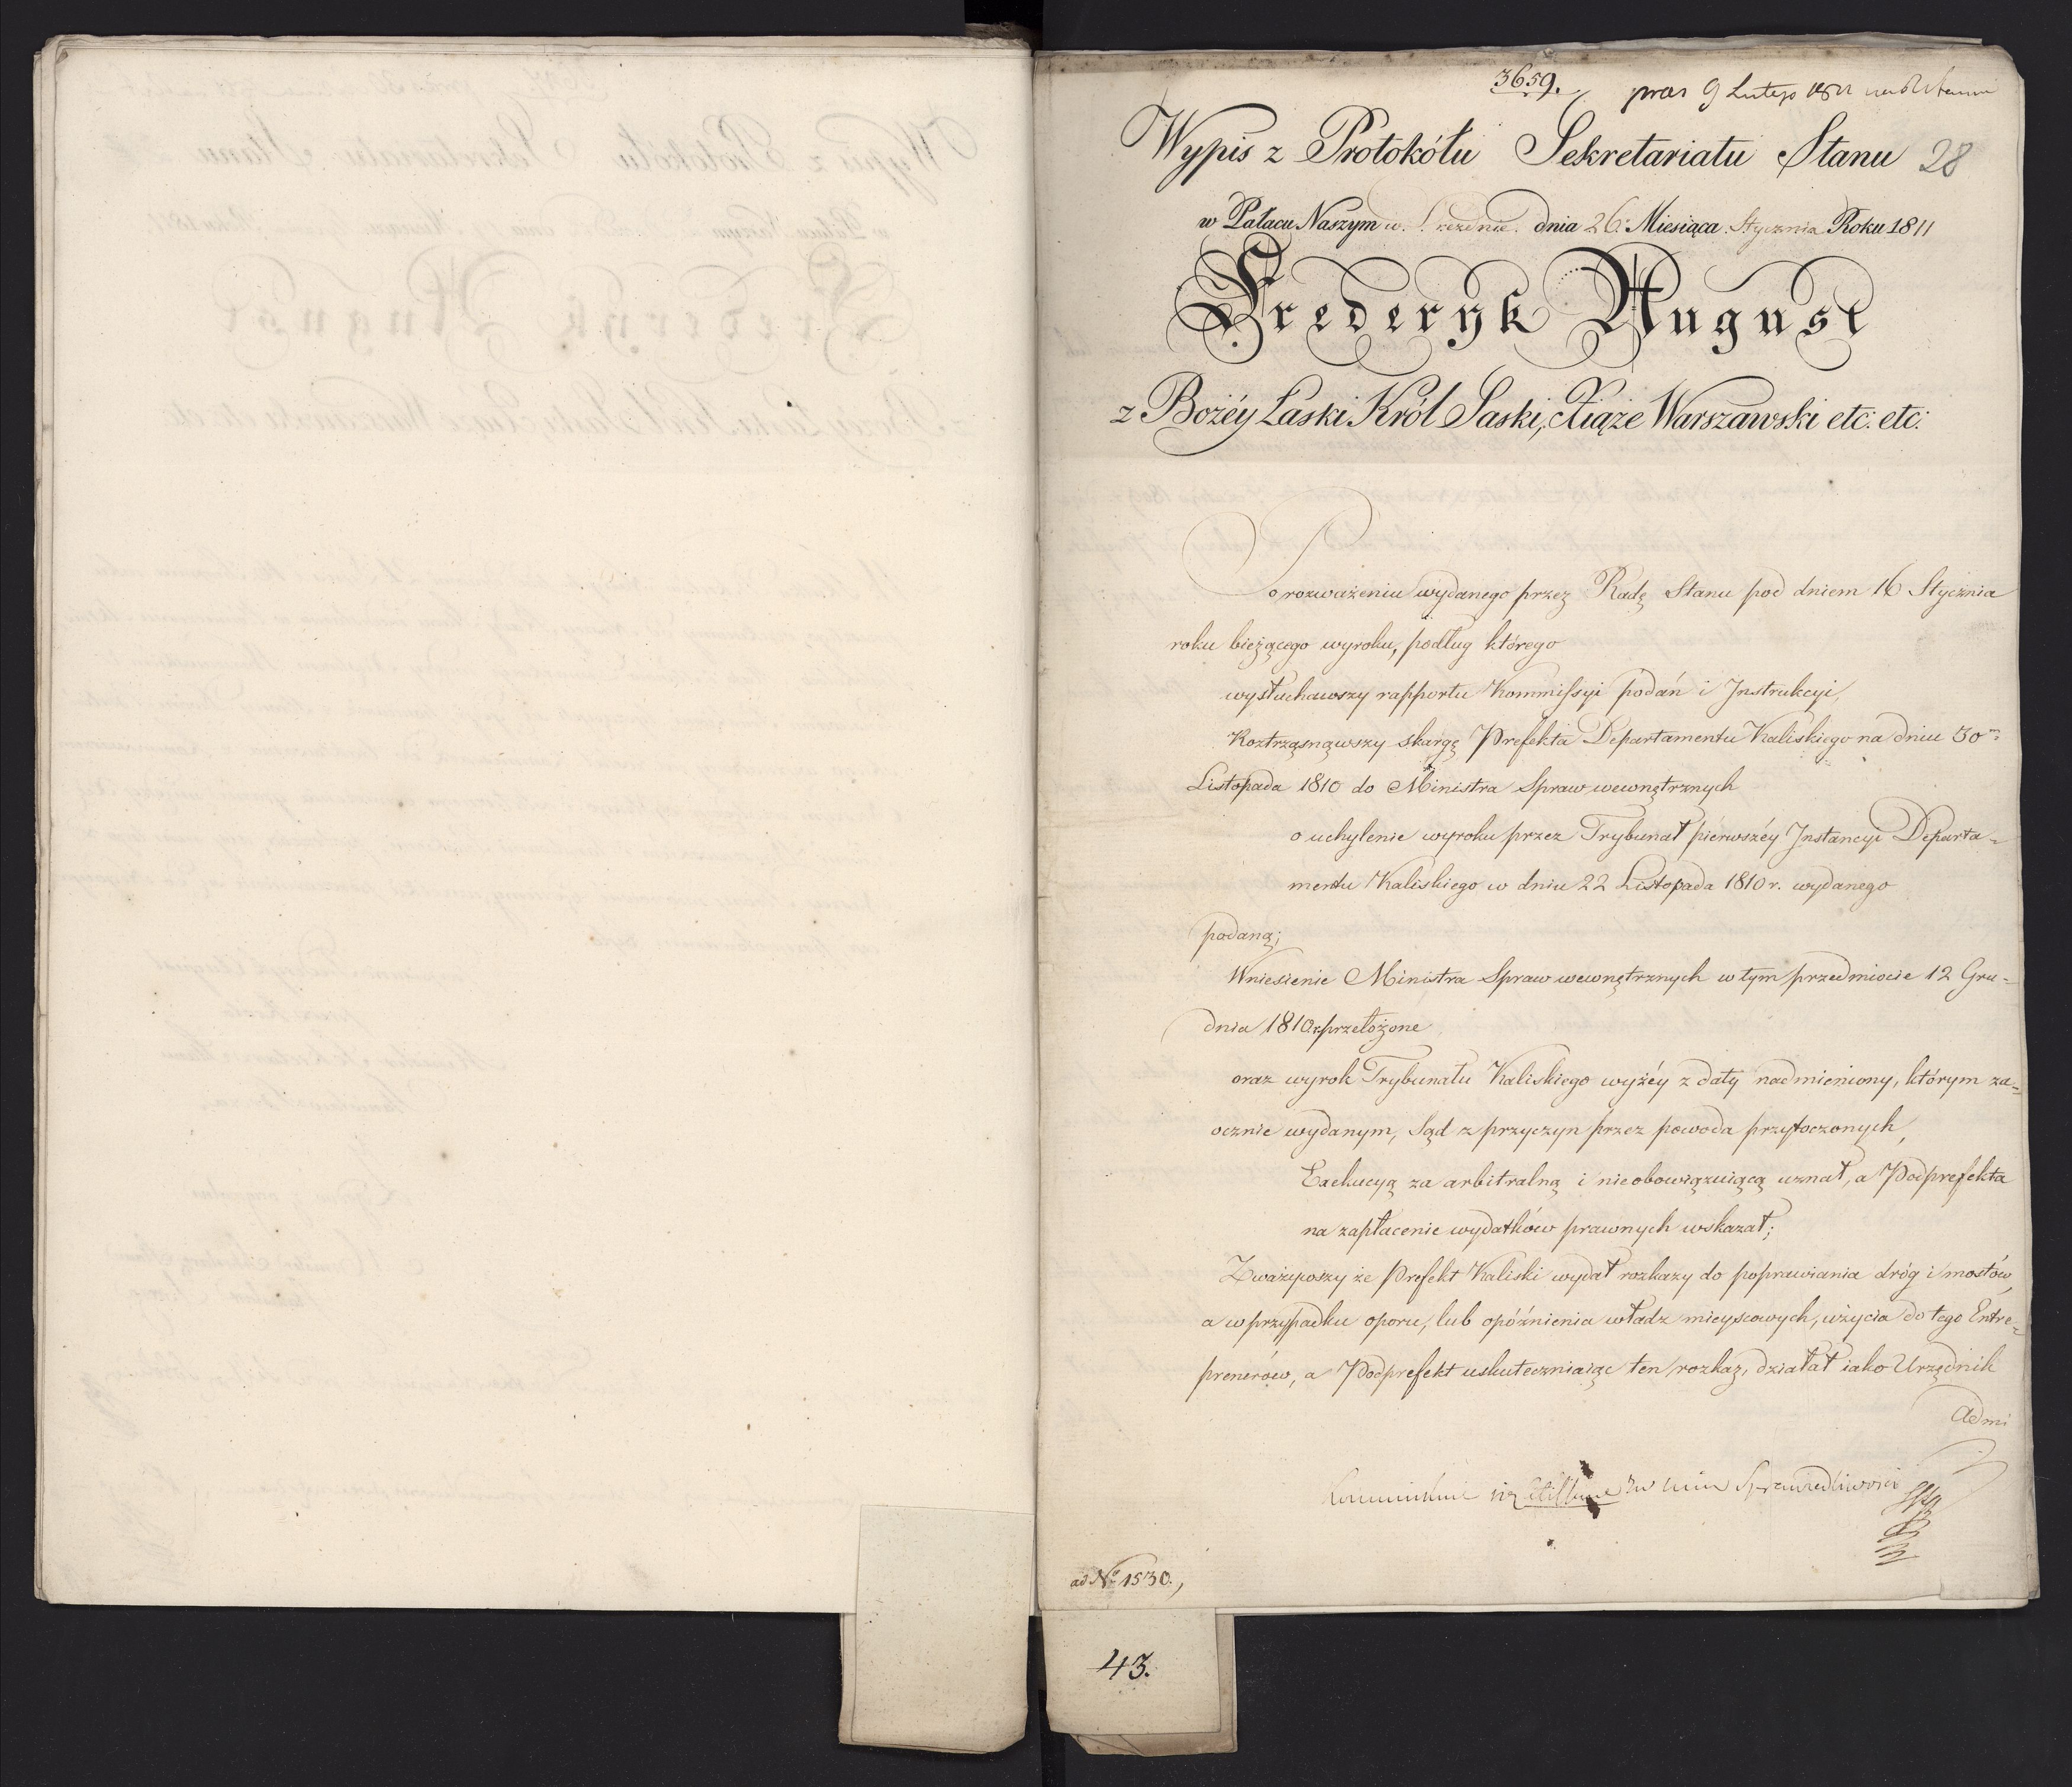 3659.
pras 9 Lutego 1811
Wypis z Protokółu Sekretariatu Stanu 28
w Pałacu Naszym w. Dreznie. dnia 26. Miesiąca. Stycznia Roku 1811
Fryderyk August
z Bożéy Łaski Król Saski, Xiąże Warszawski etc: etc:
Po rozważeniu wydanego przez Radę Stanu pod dniem 16 Stycznia
roku bieżącego wyroku, podług którego
wysłuchawszy rapportu Kommissyi podań i Instrukcyi,
Roztrząsnąwszy skargę Prefekta Departamentu Kaliskiego na dniu 30m
Listopada 1810 do Ministra Spraw wewnętrznych
o uchylenie wyroku przez Trybunał piérwszéy Instancyi Departa-
mentu Kaliskiego w dniu 22 Listopada 1810 r. wydanego
podaną;
Wniesienie Ministra Spraw wewnętrznych w tym przedmiocie 12 Gru-
dnia 1810 r. przełożone
oraz wyrok Trybunału Kaliskiego wyżéy z daty nadmieniony, którym za-
ocznie wydanym, Sąd z przyczyn przez powoda przytoczonych,
Exekucyą za arbitralną i nieobowiązuiącą uznał, a Podprefekta
na zapłacenie wydatków prawnych wskazał;
Zważywszy że Prefekt Kaliski wydał rozkazy do poprawiania dróg i mostów,
a w przypadku oporu, lub opóźnienia władz mieyscowych, użycia do tego Entre-
prenerów, a Podprefekt uskuteczniaiąc ten rozkaz, działał iako Urzędnik
Admi
Sprawiedliwości
ad No 1530.,
43.